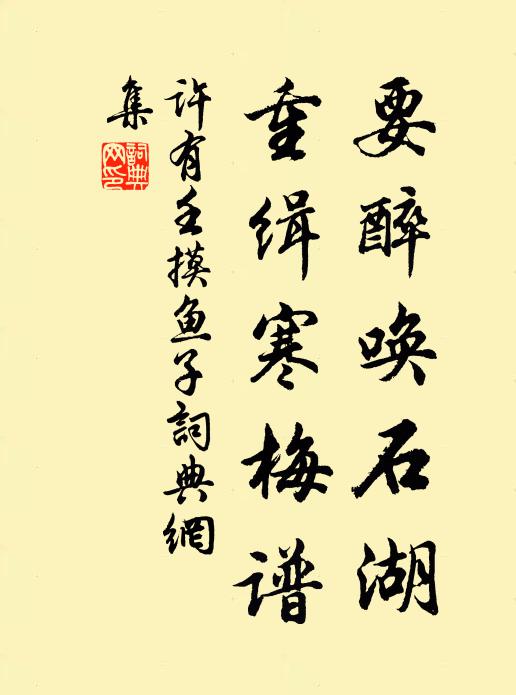 要醉唤石湖
重缉寒梅谱
许有壬摸鱼子詞典網
集
詞典
網印